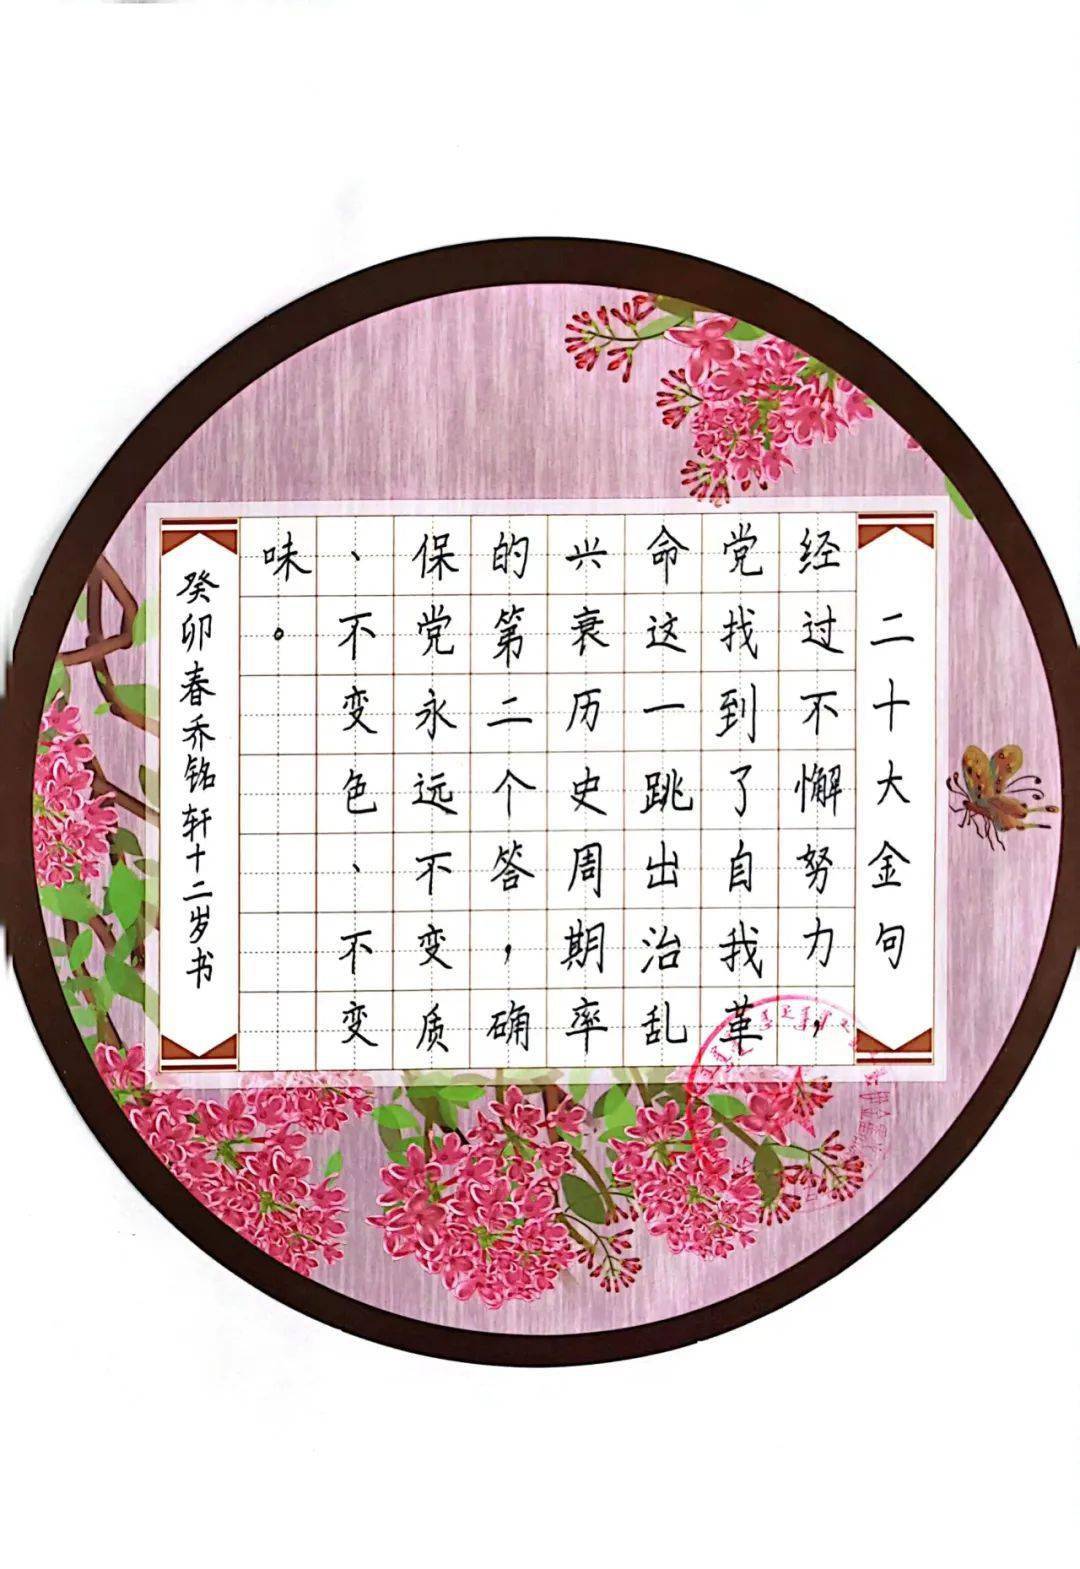 二十大金句
经过不懈努力，
党找到了自我革
命这一跳出治乱
兴衰历史周期率
的第二个答，确
保党永远不变质
、不变色、不变
味。
癸卯春乔铭轩十二岁书